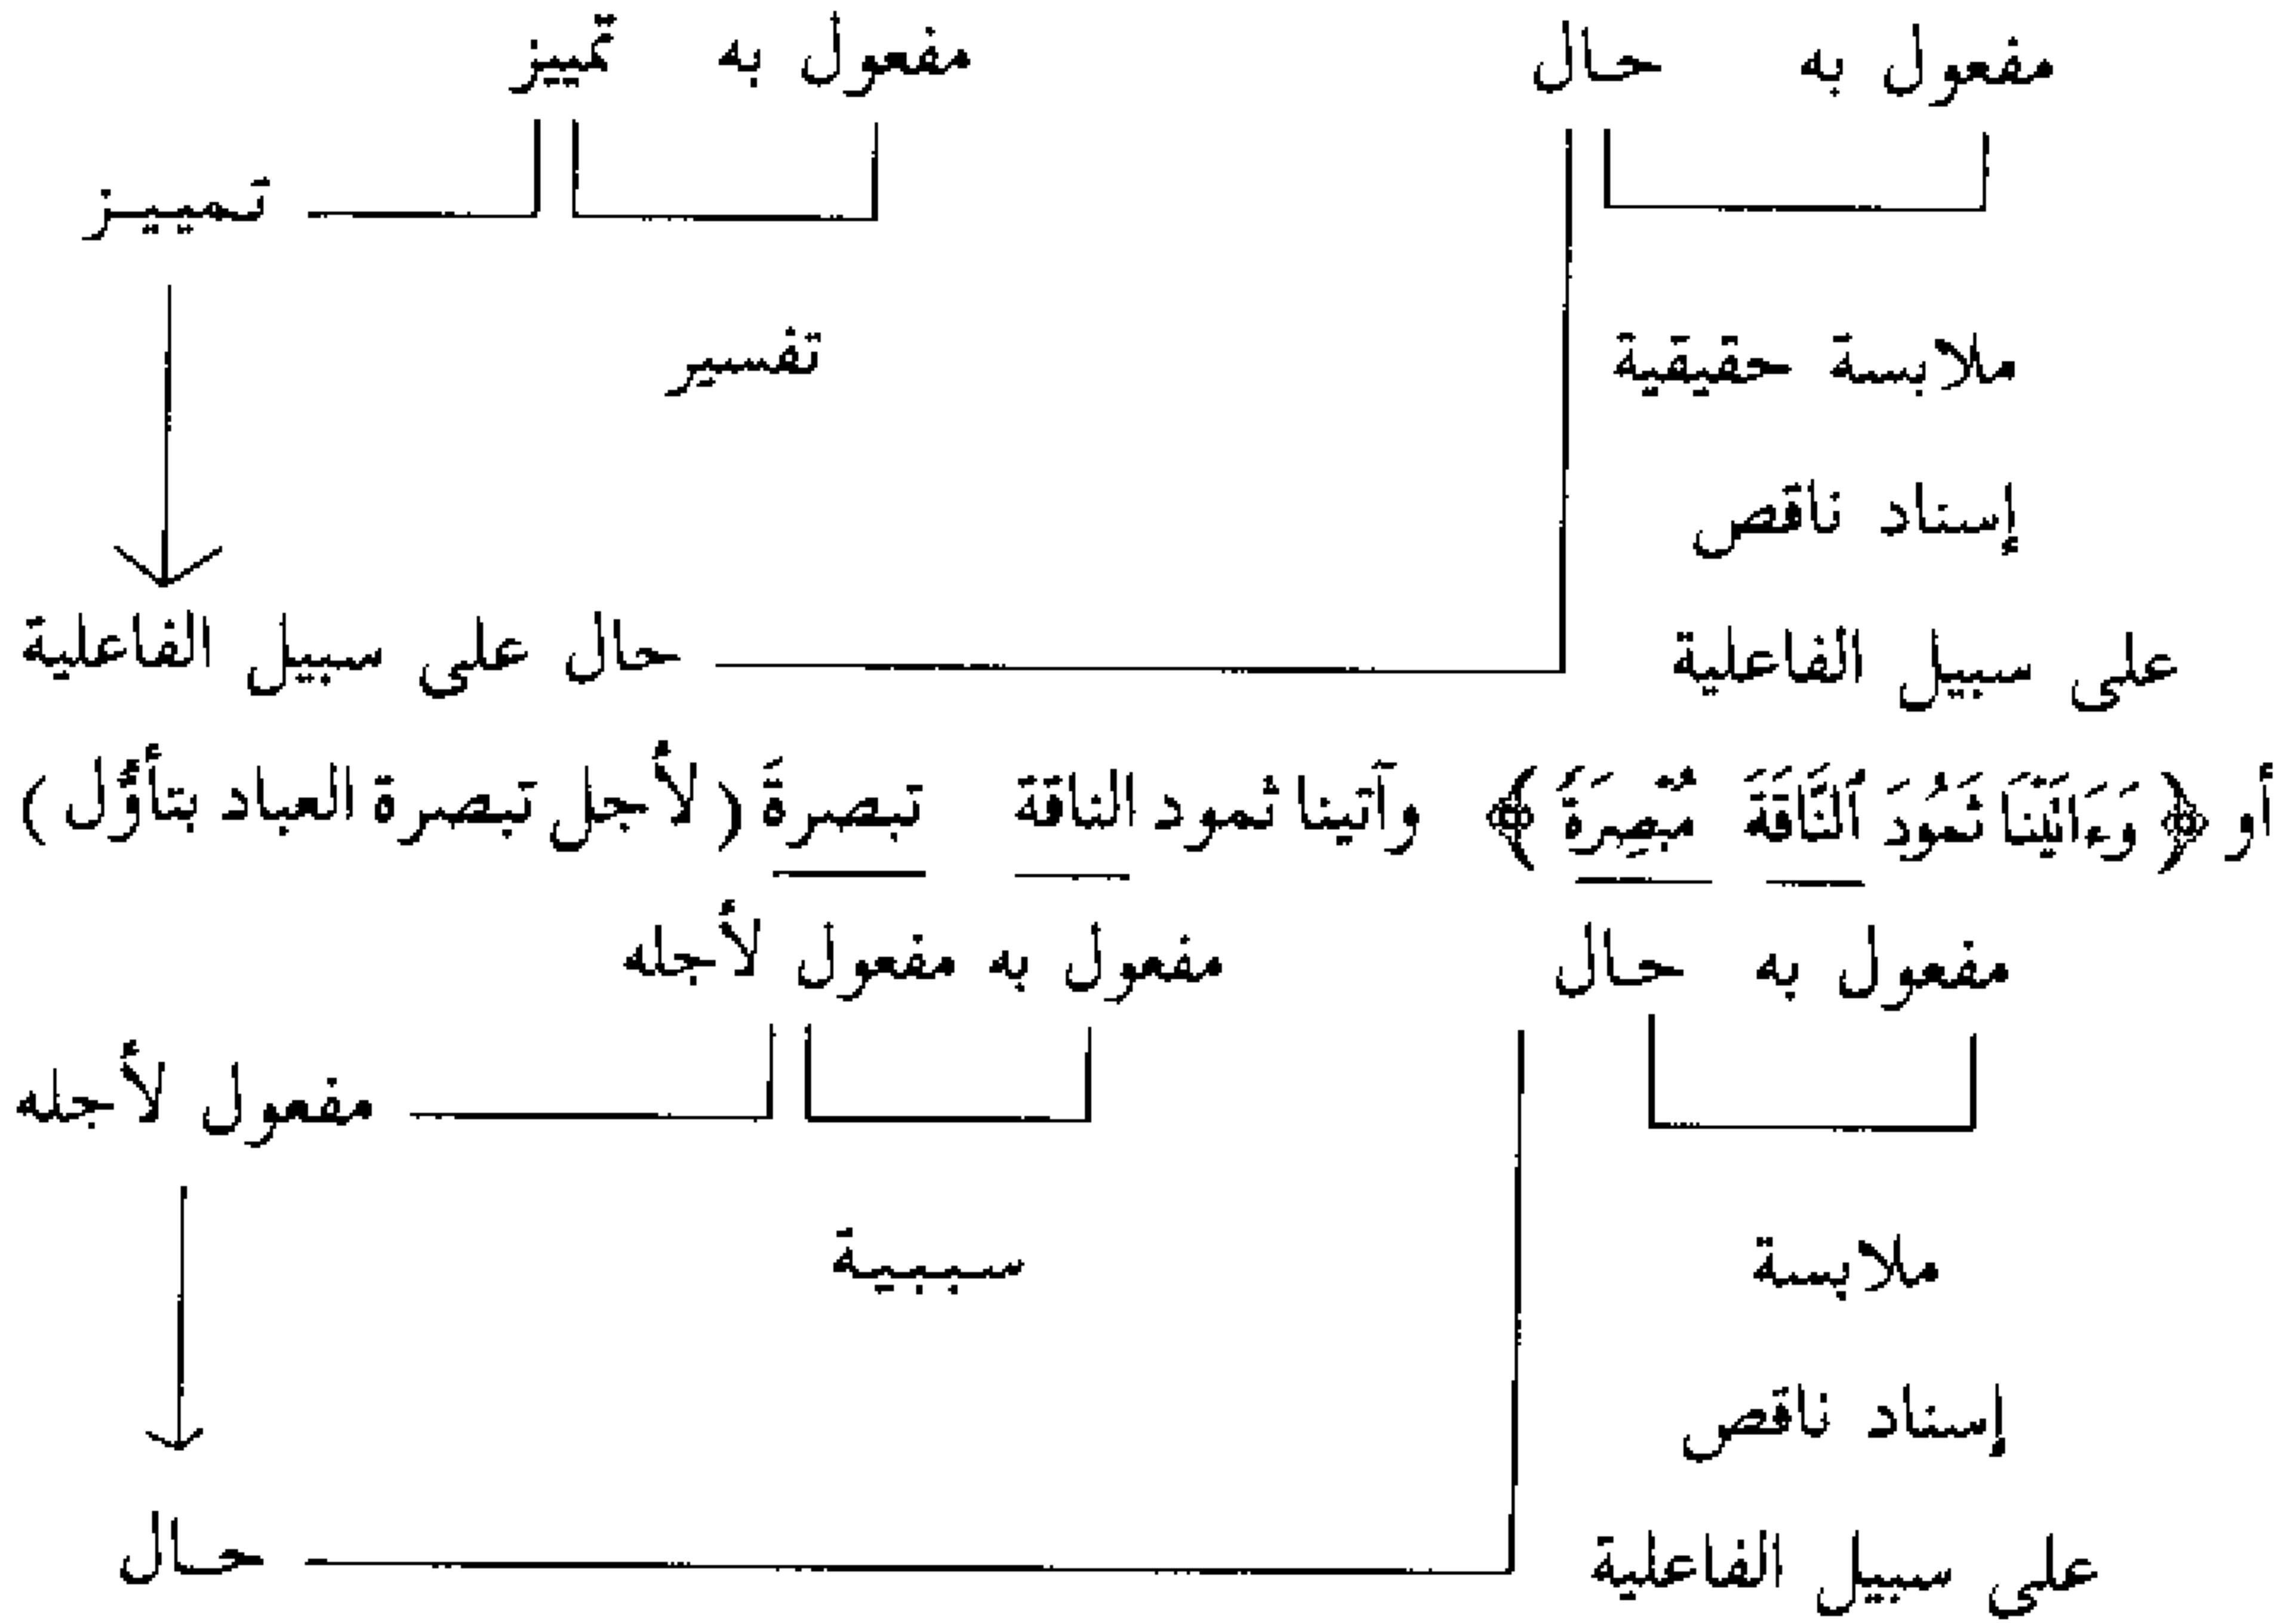 مفعول به حال مفعول به تمييز
تمييز
ملابسة حقيقية تفسير
إسناد ناقص
على سبيل الفاعلية حال على سبيل الفاعلية
أو ﴿وَءَاتَيْنَا ثَمُودَ ٱلنَّاقَةَ مُبْصِرَةً﴾ وآتينا ثمود الناقة تبصرةً (لأجل تبصرة العباد بتأوُّل)
مفعول به حال مفعول به مفعول لأجله
مفعول لأجله
ملابسة سببية
إسناد ناقص
على سبيل الفاعلية حال